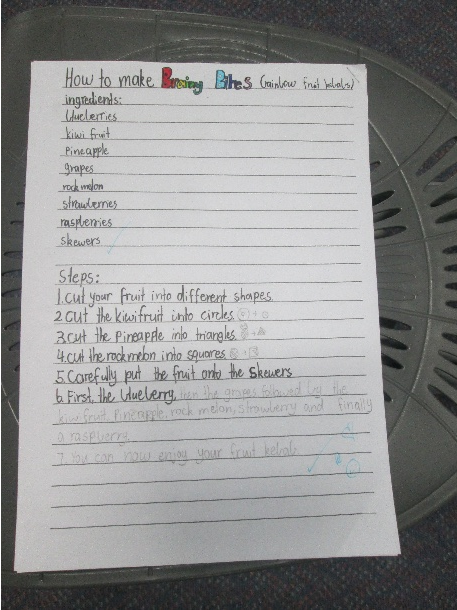 How to make Brainy Bites (rainbow fruit kebabs)
ingredients:
blueberries
kiwi fruit
Pineapple
grapes
rockmelon
strawberries
raspberries
skewers
Steps:
1. cut your fruit into different shapes.
2. cut the kiwifruit into circles
3. cut the Pineapple into triangles.
4. cut the rockmelon into squares
5. Carefully put the fruit onto the skewers
6. First, the blueberry, then the grapes followed by the
kiwi fruit, Pineapple, rock melon, strawberry and finally
a raspberry.
7. You can now enjoy your fruit kebab.